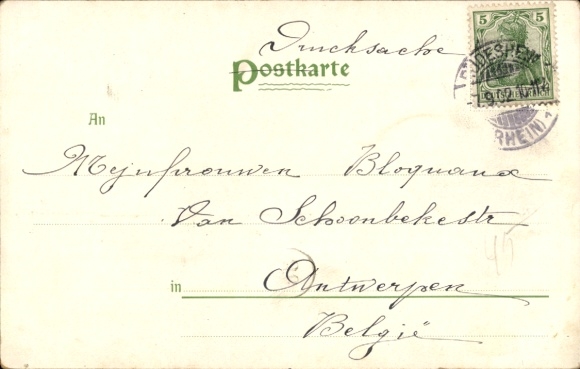 Drucksache
Postkarte
5 5
RÜDESHEIM
9.02.10-11
(RHEIN)
An
Mejufrouwen Bloquaux
Van Schoonbekestr
45
in Antwerpen
België